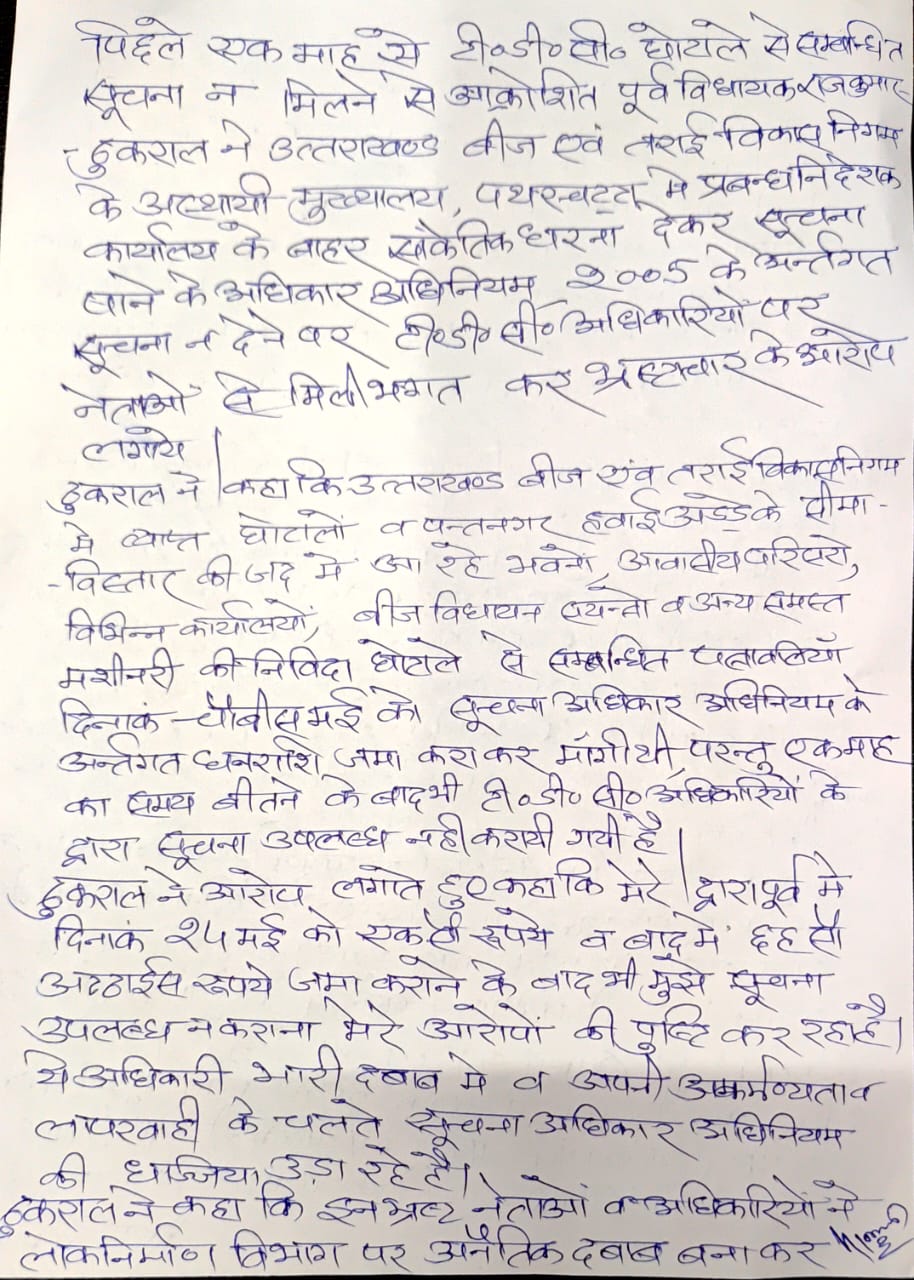 पिछले एक माह से टी०डी०सी० घोटाले से सम्बन्धित
सूचना न मिलने से आक्रोशित पूर्व विधायक राजकुमार
ठुकराल ने उत्तराखण्ड बीज एवं तराई विकास निगम
के अस्थायी मुख्यालय, पथरचट्टा मे प्रबन्ध निदेशक
कार्यालय के बाहर सांकेतिक धरना देकर सूचना
पाने के अधिकार अधिनियम 2005 के अर्न्तगत
सूचना न देने पर टी०डी० सी० अधिकारियों पर
नेताओं से मिलीभगत कर भ्रष्टाचार के आरोप
लगाये।
ठुकराल ने कहा कि उत्तराखण्ड बीज एंव तराई विकास निगम
मे व्याप्त घोटालों व पन्तनगर हवाई अड्डे के सीमा-
-विस्तार की जद मे आ रहे भवनों, आवासीय परिसरो,
विभिन्न कार्यालयों, बीज विधायन सयंन्तो व अन्य समस्त
मशीनरी की निविदा घोटाले से सम्बन्धित पत्रावलियाँ
दिनाकं चौबीस मई को सूचना अधिकार अधिनियम के
अर्न्तगत धनराशि जमा कराकर मांगी थी, परन्तु एक माह
का समय बीतने के बाद भी टी०डी० सी० अधिकारियों के
द्वारा सूचना उपलब्ध नही करायी गयी है।
ठुकराल ने आरोप लगाते हुए कहा कि मेरे द्वारा पूर्व मे
दिनाकं 24 मई को एक सौ रूपये व बाद मे छह सौ
अट्ठाईस रूपये जमा कराने के बाद भी मुझे सूचना
उपलब्ध न कराना मेरे आरोपों की पुष्टि कर रहा है।
ये अधिकारी भारी दबाब मे व अपनी अकर्मण्यता व
लापरवाही के चलते सूचना अधिकार अधिनियम
की धाज्जिया उड़ा रहे है।
ठुकराल ने कहा कि इन भ्रष्ट नेताओं व अधिकारियों ने
लोक निर्माण विभाग पर अनैतिक दबाब बना कर